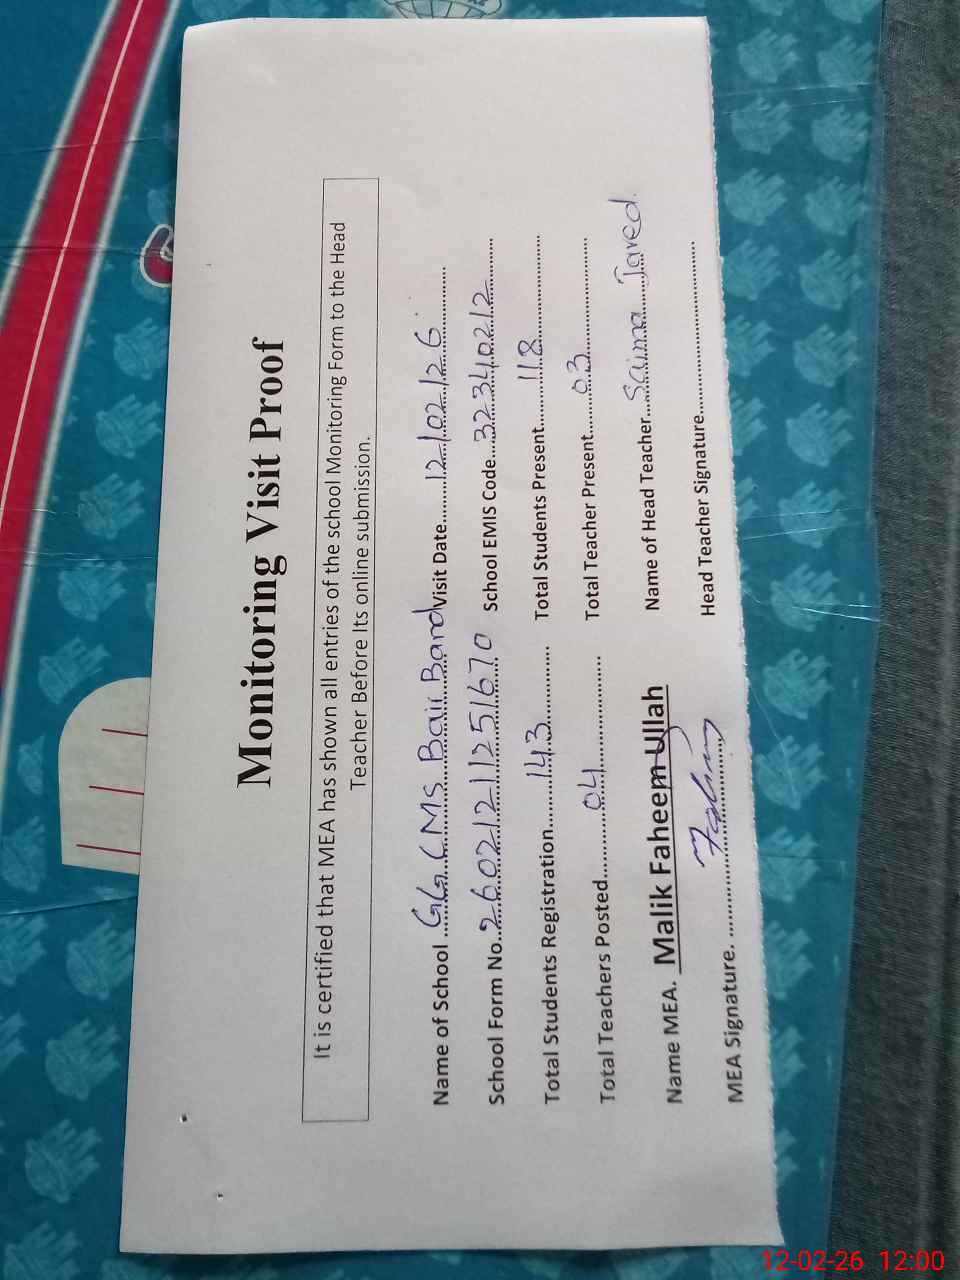 Monitoring Visit Proof
It is certified that MEA has shown all entries of the school Monitoring Form to the Head
Teacher Before Its online submission.
Name of School ........ GGCMS Baii Band Visit Date........ 12/02/26 ........
School Form No. 26021211251670 School EMIS Code.... 32340212
Total Students Registration........ 143 ........ Total Students Present........ 118 ........
Total Teachers Posted........ 04 ........ Total Teacher Present........ 03 ........
Name MEA. Malik Faheem Ullah Name of Head Teacher.. Saima Javed.
MEA Signature. ........ Head Teacher Signature........
12-02-26 12:00